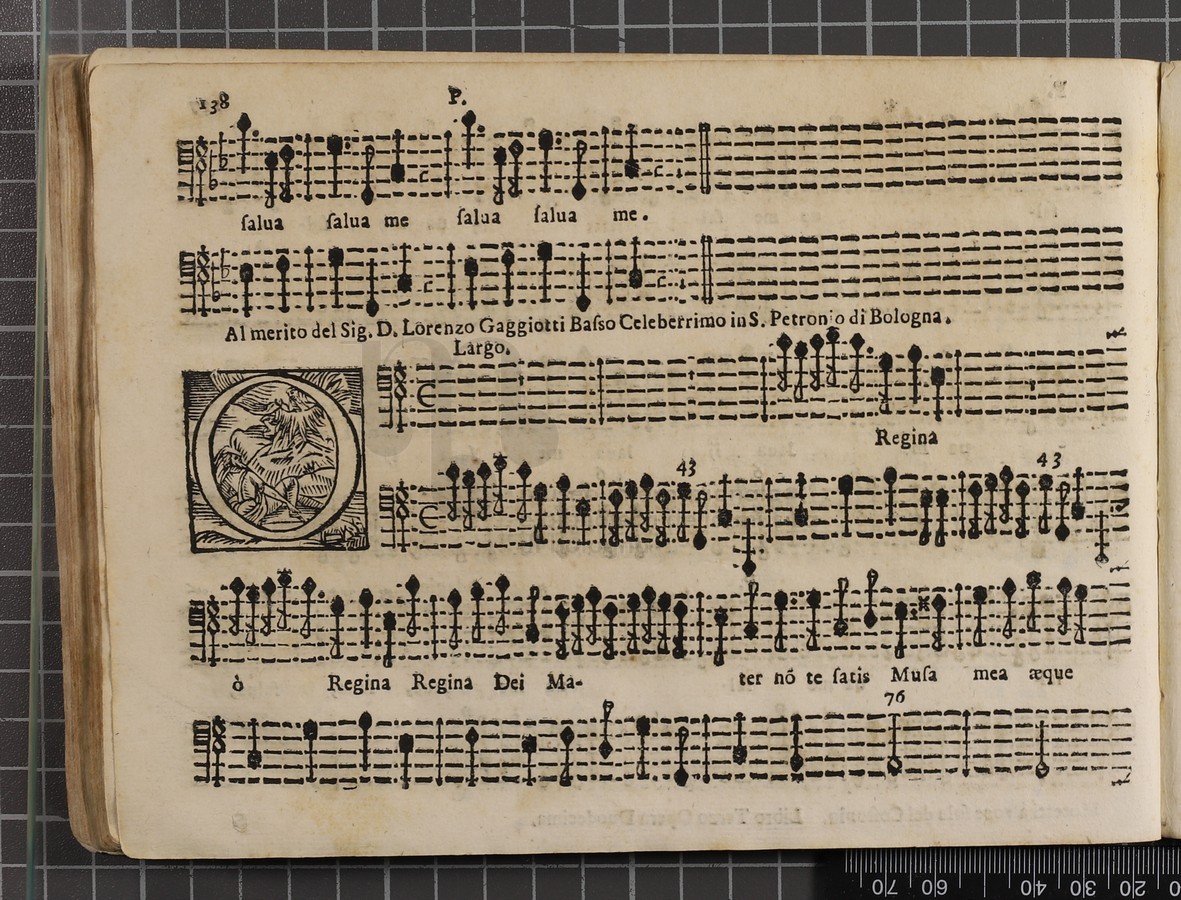 138 P.
ſalua ſalua me ſalua ſalua me.
Al merito del Sig. D. Lorenzo Gaggiotti Baſso Celeberrimo in S. Petronio di Bologna.
Largo.
O
Regina
43 43
ò Regina Regina Dei Ma- ter nõ te ſatis Muſa mea æque
76
70 60 40 30 20